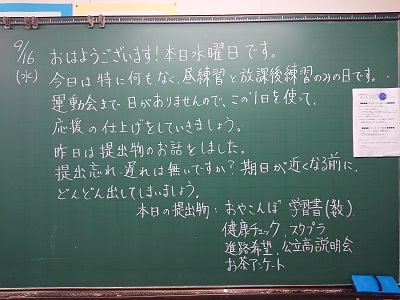 9/16
(水)
おはようございます!本日水曜日です。
今日は特に何もなく、昼練習と放課後練習のみの日です。
運動会まで日がありませんので、この1日を使って、
応援の仕上げをしていきましょう。
昨日は提出物のお話をしました。
提出忘れ、遅れは無いですか?期日が近くなる前に、
どんどん出してしまいましょう。
本日の提出物:おやこんぼ 学習書(数)
健康チェック、スタプラ
進路希望、公立高説明会
お茶アンケート